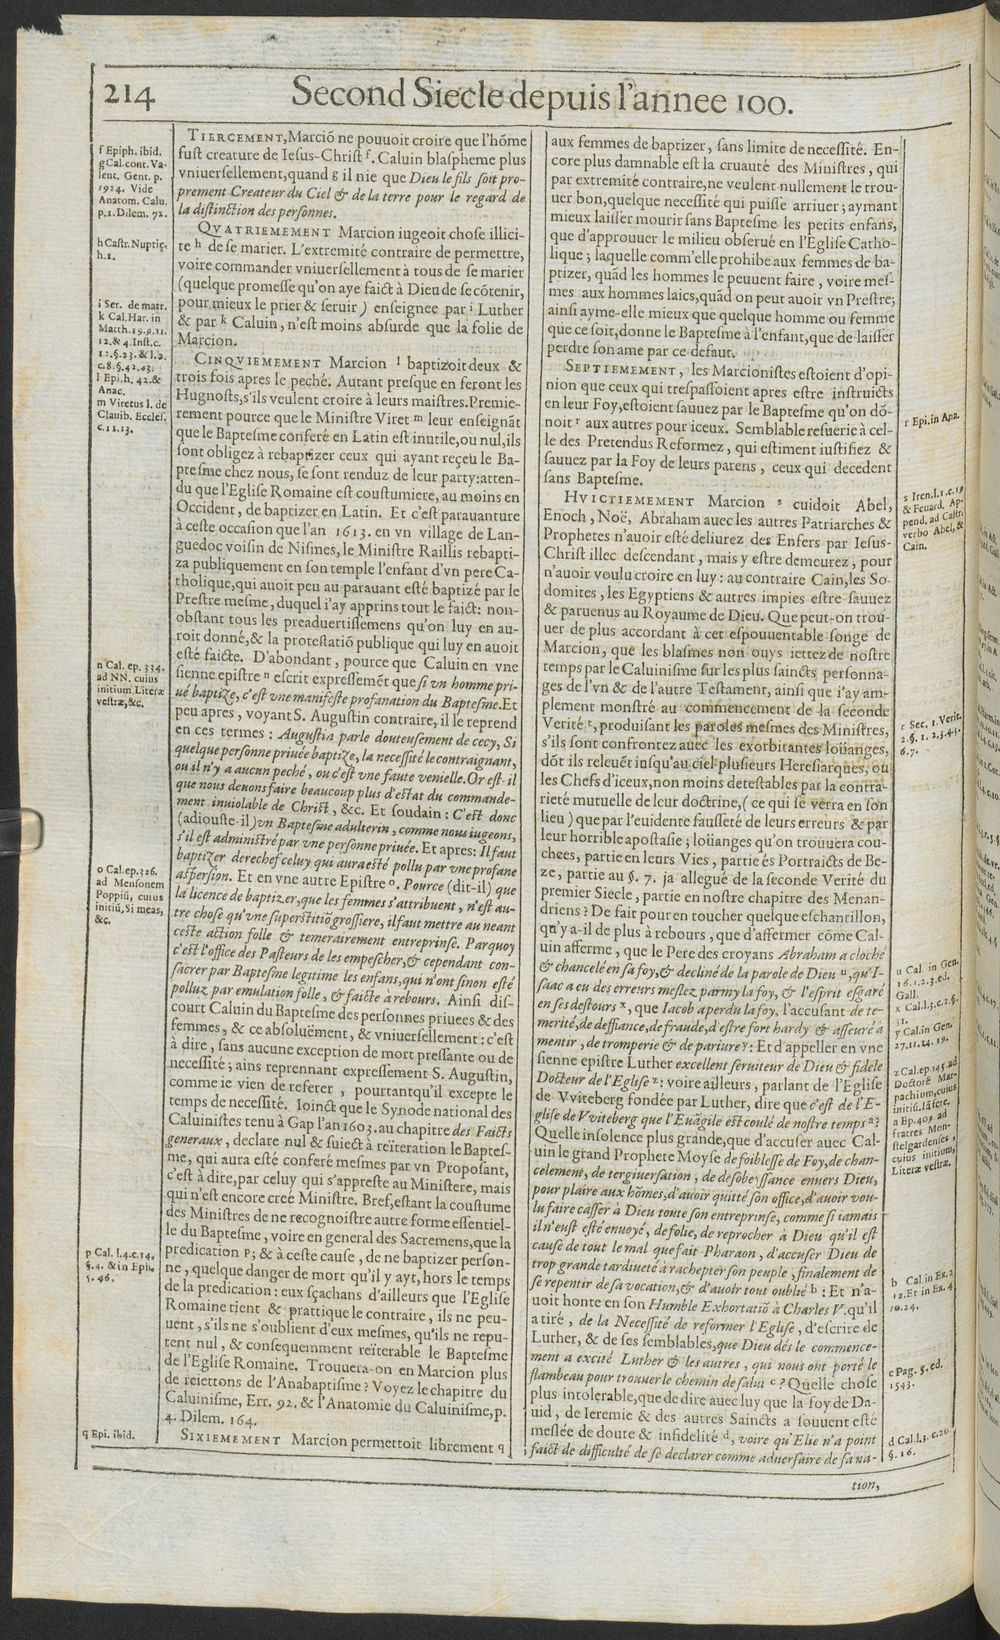 214
Second Siecle depuis l'annee 100.
f Epiph. ibid.
g Cal. cont. Va-
lent. Gent. p.
1924. Vide
Anatom. Calu.
p. 1. Dilem. 72.
h Castr. Nuptię.
h. 1.
i Ser. de matr.
k Cal. Har. in
Matth. 19. 9. 11.
12. & 4. Inst. c.
12. §. 23. & l. 2.
c. 8. §. 42. 43.
l Epi. h. 42. &
Anac.
m Viretus l. de
Clauib. Ecclef.
c. 11. 13.
n Cal. ep. 334.
ad NN. cuius
initium, Literæ
vestræ, &c.
o Cal. ep. 326.
ad Mensonem
Poppiū, cuius
initiū, Si meas,
&c.
p Cal. l. 4. c. 14.
§. 4. & in Ephe
5. 26.
q Epi. ibid.
TIERCEMENT, Marciō ne pouuoit croire que l'hōme
fust creature de Iesus-Christ f. Caluin blaspheme plus
vniuersellement, quand g il nie que Dieu le fils soit pro-
prement Createur du Ciel & de la terre pour le regard de
la distinction des personnes.
QVATRIEMEMENT Marcion iugeoit chose illici-
te h de se marier. L'extremité contraire de permettre,
voire commander vniuersellement à tous de se marier
(quelque promesse qu'on aye faict à Dieu de se cōtenir,
pour mieux le prier & seruir) enseignee par i Luther
& par k Caluin, n'est moins absurde que la folie de
Marcion.
CINQVIEMEMENT Marcion l baptizoit deux &
trois fois apres le peché. Autant presque en feront les
Hugnosts, s'ils veulent croire à leurs maistres. Premie-
rement pource que le Ministre Viret m leur enseignāt
que le Baptesme conferé en Latin est inutile, ou nul, ils
sont obligez à rebaptizer ceux qui ayant reçeu le Ba-
ptesme chez nous, se sont renduz de leur party: atten-
du que l'Eglise Romaine est coustumiere, au moins en
Occident, de baptizer en Latin. Et c'est parauanture
à ceste occasion que l'an 1613. en vn village de Lan-
guedoc voisin de Nismes, le Ministre Raillis rebapti-
za publiquement en son temple l'enfant d'vn pere Ca-
tholique, qui auoit peu au parauant esté baptizé par le
Prestre mesme, duquel i'ay apprins tout le faict: non-
obstant tous les preaduertissemens qu'on luy en au-
roit donné, & la protestatiō publique qui luy en auoit
esté faicte. D'abondant, pource que Caluin en vne
sienne epistre n escrit expressemēt que si vn homme pri-
ué baptize, c'est vne manifeste profanation du Baptesme. Et
peu apres, voyant S. Augustin contraire, il le reprend
en ces termes : Augustin parle douteusement de cecy, Si
quelque personne priuée baptize, la necessité le contraignant,
ou il n'y a aucun peché, ou c'est vne faute venielle. Or est-il
que nous deuons faire beaucoup plus d'estat du commande-
ment inuiolable de Christ, &c. Et soudain : C'est donc
(adiouste-il) vn Baptesme adulterin, comme nous iugeons,
s'il est administré par vne personne priuée. Et apres: Il faut
baptizer derechef celuy qui aura esté pollu par vne profane
aspersion. Et en vne autre Epistre o. Pource (dit-il) que
la licence de baptizer, que les femmes s'attribuent, n'est au-
tre chose qu'vne superstitiō grossiere, il faut mettre au neant
ceste action folle & temerairement entreprinse. Parquoy
c'est l'office des Pasteurs de les empescher, & cependant con-
sacrer par Baptesme legitime les enfans, qui n'ont sinon esté
polluz par emulation folle, & faicte à rebours. Ainsi dis-
court Caluin du Baptesme des personnes priuees & des
femmes, & ce absoluëment, & vniuersellement : c'est
à dire, sans aucune exception de mort pressante ou de
necessité ; ains reprennant expressement S. Augustin,
comme ie vien de referer, pourtantqu'il excepte le
temps de necessité. Ioinct que le Synode national des
Caluinistes tenu à Gap l'an 1603. au chapitre des Faicts
generaux, declare nul & suiect à reïteration le Baptes-
me, qui aura esté conferé mesmes par vn Proposant,
c'est à dire, par celuy qui s'appreste au Ministere, mais
qui n'est encore creé Ministre. Bref, estant la coustume
des Ministres de ne recognoistre autre forme essentiel-
le du Baptesme, voire en general des Sacremens, que la
predication p; & à ceste cause, de ne baptizer person-
ne, quelque danger de mort qu'il y ayt, hors le temps
de la predication : eux sçachans d'ailleurs que l'Eglise
Romaine tient & prattique le contraire, ils ne peu-
uent, s'ils ne s'oublient d'eux mesmes, qu'ils ne repu-
tent nul, & consequemment reïterable le Baptesme
de l'Eglise Romaine. Trouuera-on en Marcion plus
de reiettons de l'Anabaptisme? Voyez le chapitre du
Caluinisme, Err. 92. & l'Anatomie du Caluinisme, p.
4. Dilem. 164.
SIXIEMEMENT Marcion permettoit librement q
aux femmes de baptizer, sans limite de necessité. En-
core plus damnable est la cruauté des Ministres, qui
par extremité contraire, ne veulent nullement le trou-
uer bon, quelque necessité qui puisse arriuer ; aymant
mieux laisser mourir sans Baptesme les petits enfans,
que d'approuuer le milieu obserué en l'Eglise Catho-
lique ; laquelle comm'elle prohibe aux femmes de ba-
ptizer, quād les hommes le peuuent faire, voire mes-
mes aux hommes laics, quād on peut auoir vn Prestre;
ainsi ayme-elle mieux que quelque homme ou femme
que ce soit, donne le Baptesme à l'enfant, que de laisser
perdre son ame par ce defaut.
SEPTIEMEMENT, les Marcionistes estoient d'opi-
nion que ceux qui trespassoient apres estre instruicts
en leur Foy, estoient sauuez par le Baptesme qu'on dō-
noit r aux autres pour iceux. Semblable resuerie à cel-
le des Pretendus Reformez, qui estiment iustifiez &
sauuez par la Foy de leurs parens, ceux qui decedent
sans Baptesme.
HVICTIEMEMENT Marcion s cuidoit Abel,
Enoch, Noë, Abraham auec les autres Patriarches &
Prophetes n'auoir esté deliurez des Enfers par Iesus-
Christ illec descendant, mais y estre demeurez, pour
n'auoir voulu croire en luy : au contraire Cain, les So-
domites, les Egyptiens & autres impies estre sauuez
& paruenus au Royaume de Dieu. Que peut-on trou-
uer de plus accordant à cet espouuentable songe de
Marcion, que les blasmes non ouys iettez de nostre
temps par le Caluinisme sur les plus saincts personna-
ges de l'vn & de l'autre Testament, ainsi que i'ay am-
plement monstré au commencement de la seconde
Verité t, produisant les paroles mesmes des Ministres,
s'ils sont confrontez auec les exorbitantes loüanges,
dōt ils releuēt iusqu'au ciel plusieurs Heresiarques, ou
les Chefs d'iceux, non moins detestables par la contra-
rieté mutuelle de leur doctrine, ( ce qui se verra en son
lieu ) que par l'euidente fausseté de leurs erreurs & par
leur horrible apostasie ; loüanges qu'on trouuera cou-
chees, partie en leurs Vies, partie és Portraicts de Be-
ze, partie au §. 7. ja allegué de la seconde Verité du
premier Siecle, partie en nostre chapitre des Menan-
driens? De fait pour en toucher quelque eschantillon,
qu'y a-il de plus à rebours, que d'affermer cōme Cal-
uin afferme, que le Pere des croyans Abraham a cloché
& chancelé en sa foy, & decliné de la parole de Dieu u, qu'I-
saac a eu des erreurs meslez parmy la foy, & l'esprit esgaré
en ses destours x, que Iacob a perdu la foy, l'accusant de te-
merité, de deffiance, de fraude, d'estre fort hardy & asseuré à
mentir, de tromperie & de pariure y: Et d'appeller en vne
sienne epistre Luther excellent seruiteur de Dieu & fidele
Docteur de l'Eglise z: voire ailleurs, parlant de l'Eglise
de Vviteberg fondée par Luther, dire que c'est de l'E-
glise de Vviteberg que l'Euāgile est coulé de nostre temps a?
Quelle insolence plus grande, que d'accuser auec Cal-
uin le grand Prophete Moyse de foiblesse de Foy, de chan-
celement, de tergiuersation, de desobeyssance enuers Dieu,
pour plaire aux hōmes, d'auoir quitté son office, d'auoir vou-
lu faire casser à Dieu toute son entreprinse, comme si iamais
il n'eust esté enuoyé, de folie, de reprocher à Dieu qu'il est
cause de tout le mal que fait Pharaon, d'accuser Dieu de
trop grande tardiueté à rachepter son peuple, finalement de
se repentir de sa vocation, & d'auoir tout oublié b : Et n'a-
uoit honte en son Humble Exhortatiō à Charles V. qu'il
a tiré, de la Necessité de reformer l'Eglise, d'escrire de
Luther, & de ses semblables, que Dieu dés le commence-
ment a excité Luther & les autres, qui nous ont porté le
flambeau pour trouuer le chemin de salut c ? Quelle chose
plus intolerable, que de dire auec luy que la foy de Da-
uid, de Ieremie & des autres Saincts a souuent esté
meslée de doute & infidelité d, voire qu'Elie n'a point
faict de difficulté de se declarer comme aduersaire de sa na-
tion,
r Epi. in Ana.
s Iren. l. 1. c. 19
& Feuard. Ap-
pend. ad Castr.
verbo Abel, &
Cain.
t Sec. 1. Verit.
2. §. 1. 2. 3. 4. 5.
6. 7.
u Cal. in Gen.
16. 1. 2. 3. ed.
Gall.
x Cal. l. 3. c. 2. §.
31.
y Cal. in Gen.
27. 11. 24. 19.
z Cal. ep. 145. ad
Doctorē Mar-
pachium, cuius
initiū. Iā fere.
a Ep. 409. ad
fratres Mon-
stelgardenses,
cuius initium,
Literæ vestræ.
b Cal. in Ex. 2
12. Et in Ex. 4
10. 24.
c Pag. 5. ed.
1543.
d Cal. l. 3. c. 20.
§. 16.